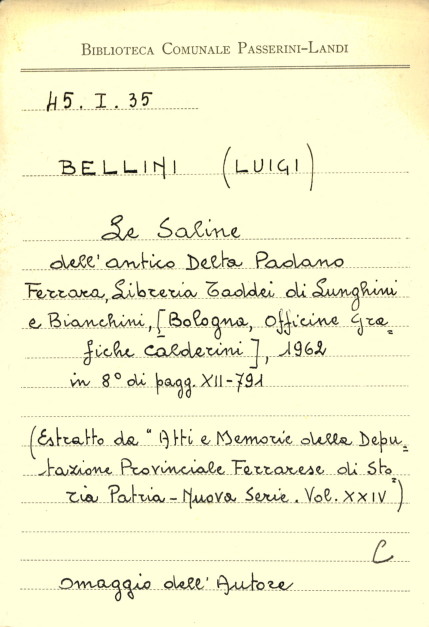 BIBLIOTECA COMUNALE PASSERINI-LANDI
45. I. 35
BELLINI (LUIGI)
Le Saline
dell'antico Delta Padano
Ferrara, Libreria Taddei di Lunghini
e Bianchini, [Bologna, Officine Gra=
fiche Calderini], 1962
in 8° di pagg. XII-791
(Estratto da "Atti e Memorie della Depu=
tazione Provinciale Ferrarese di Sto=
ria Patria - Nuova Serie. Vol. XXIV)
C
omaggio dell'Autore